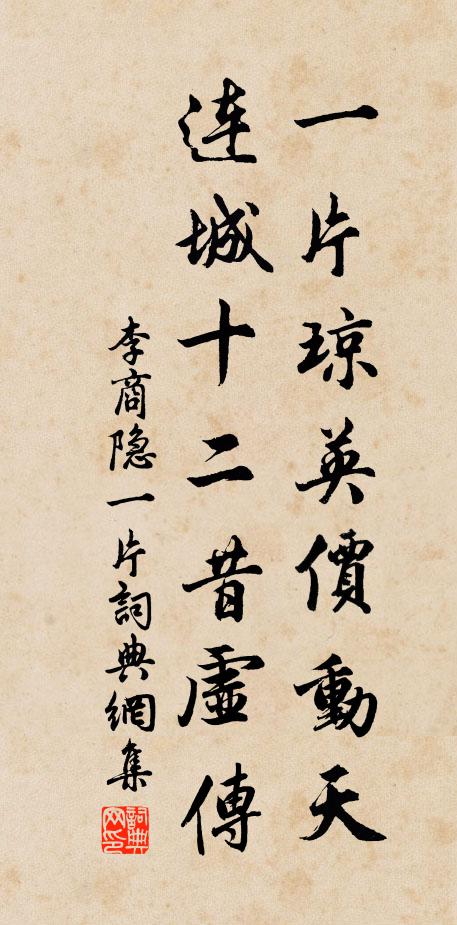 一片琼英價動天
連城十二昔虛傳
李商隐一片詞典網集
詞典
网印